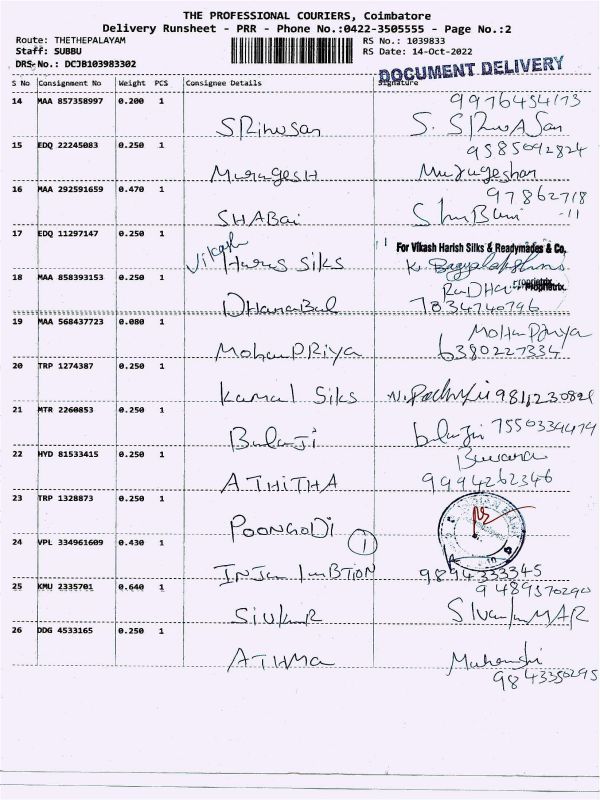 THE PROFESSIONAL COURIERS, Coimbatore
Delivery Runsheet - PRR - Phone No.:0422-3505555 - Page No.:2
Route: THETHEPALAYAM
RS No.: 1039833
Staff: SUBBU
RS Date: 14-Oct-2022
DRS No.: DCJB103983302
DOCUMENT DELIVERY
S No Consignment No Weight PCS Consignee Details Signature
14 MAA 857358997 0.200 1
SRinuSan S. SRinuASan
15 EDQ 22245083 0.250 1
9585092824
MuRugesH Murugeshan
16 MAA 292591659 0.470 1
97862718
SHABai
-11
17 EDQ 11297147 0.250 1
For Vikash Harish Silks & Readymades & Co.
Vikash Harus Silks
18 MAA 858393153 0.250 1
RaDHa Proprietrix.
DHanaBal 7834740796
19 MAA 568437723 0.080 1
MohanPRiya
MohanPRiya 6380227334
20 TRP 1274387 0.250 1
Kamal Silks
21 MTR 2260853 0.250 1
BalaJi balaji 7550334474
22 HYD 81533415 0.250 1
ATHITHA 9994262346
23 TRP 1328873 0.250 1
POONGODI
24 VPL 334961609 0.430 1
1
9894333345
25 KMU 2335701 0.640 1
9489570290
SIVanKuMAR
26 DDG 4533165 0.250 1
ATHMa
9843350295